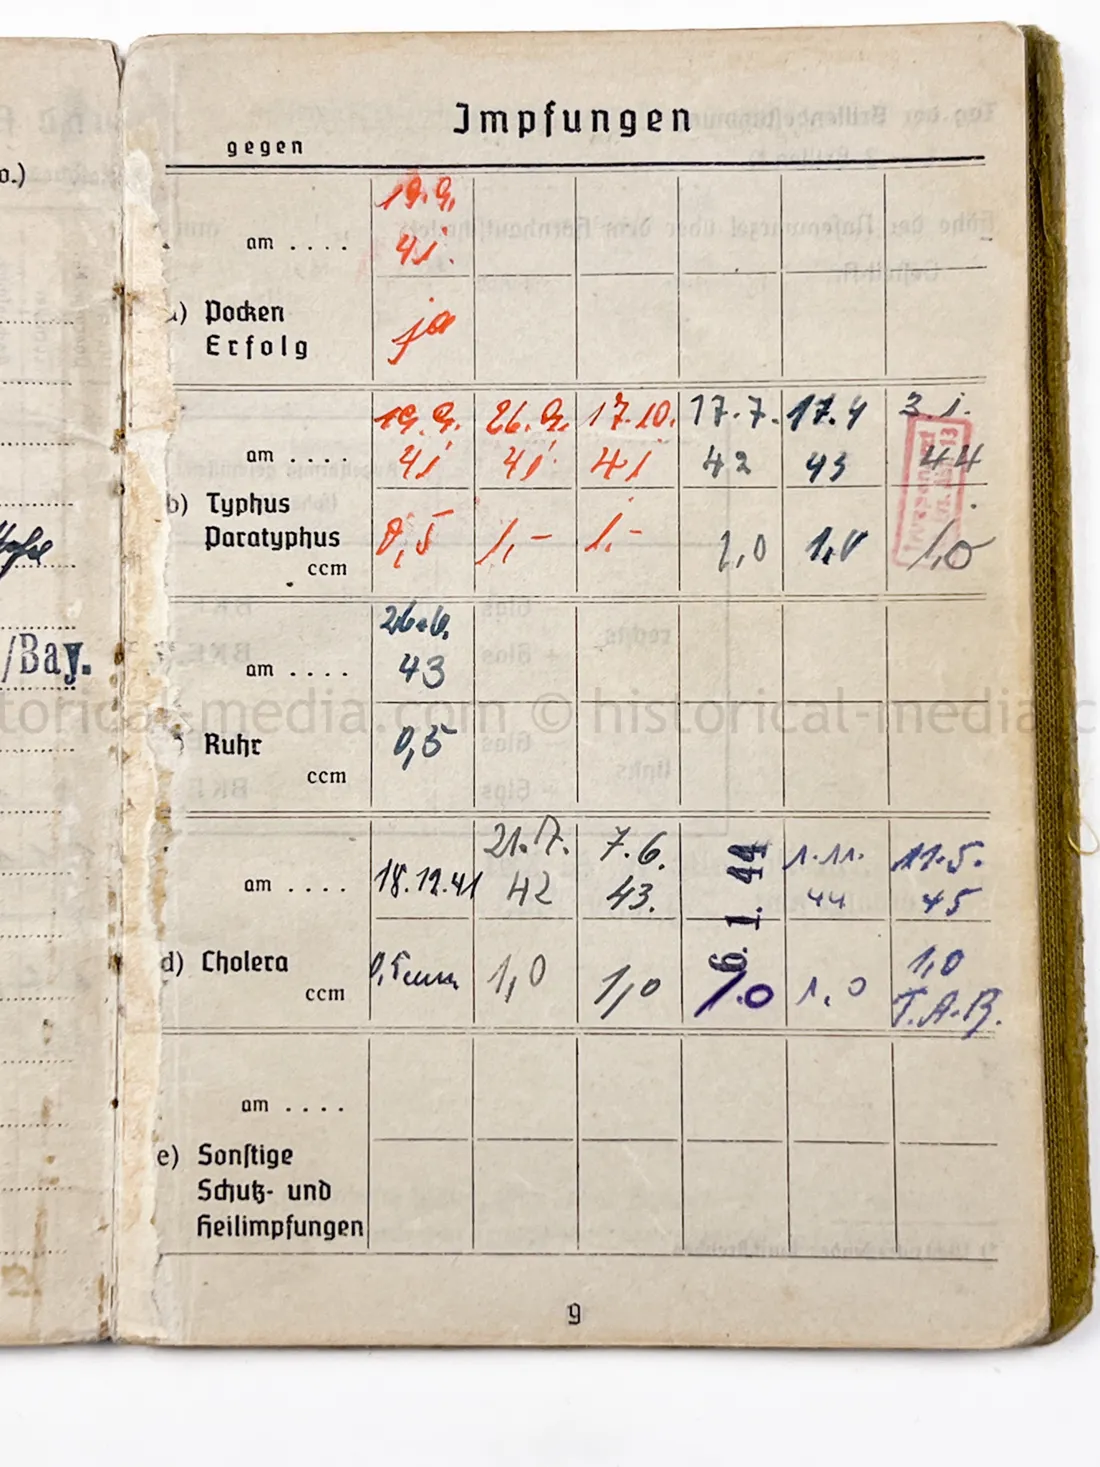 Impfungen
gegen
o.)
19.9.
am . . . . 41.
a) Pocken
Erfolg ja
19.9. 26.9. 17.10. 17.7. 17.4 3.1.
am . . . . 41 41 41 42 43 44
b) Typhus
Paratyphus 0,5 1,- 1.- 1,0 1,0 1,0
ccm
26.6.
/Bay.
am . . . . 43
historical-media.com © historical-media.c
Ruhr 0,5
ccm
21.7. 7.6. 6.1.44 1.11. 11.5.
am . . . . 18.12.41 42 43. 44 45
d) Cholera 0,5ccm 1,0 1,0 1.0 1,0 1,0
ccm T.A.B.
am . . . .
e) Sonstige
Schutz- und
Heilimpfungen
9